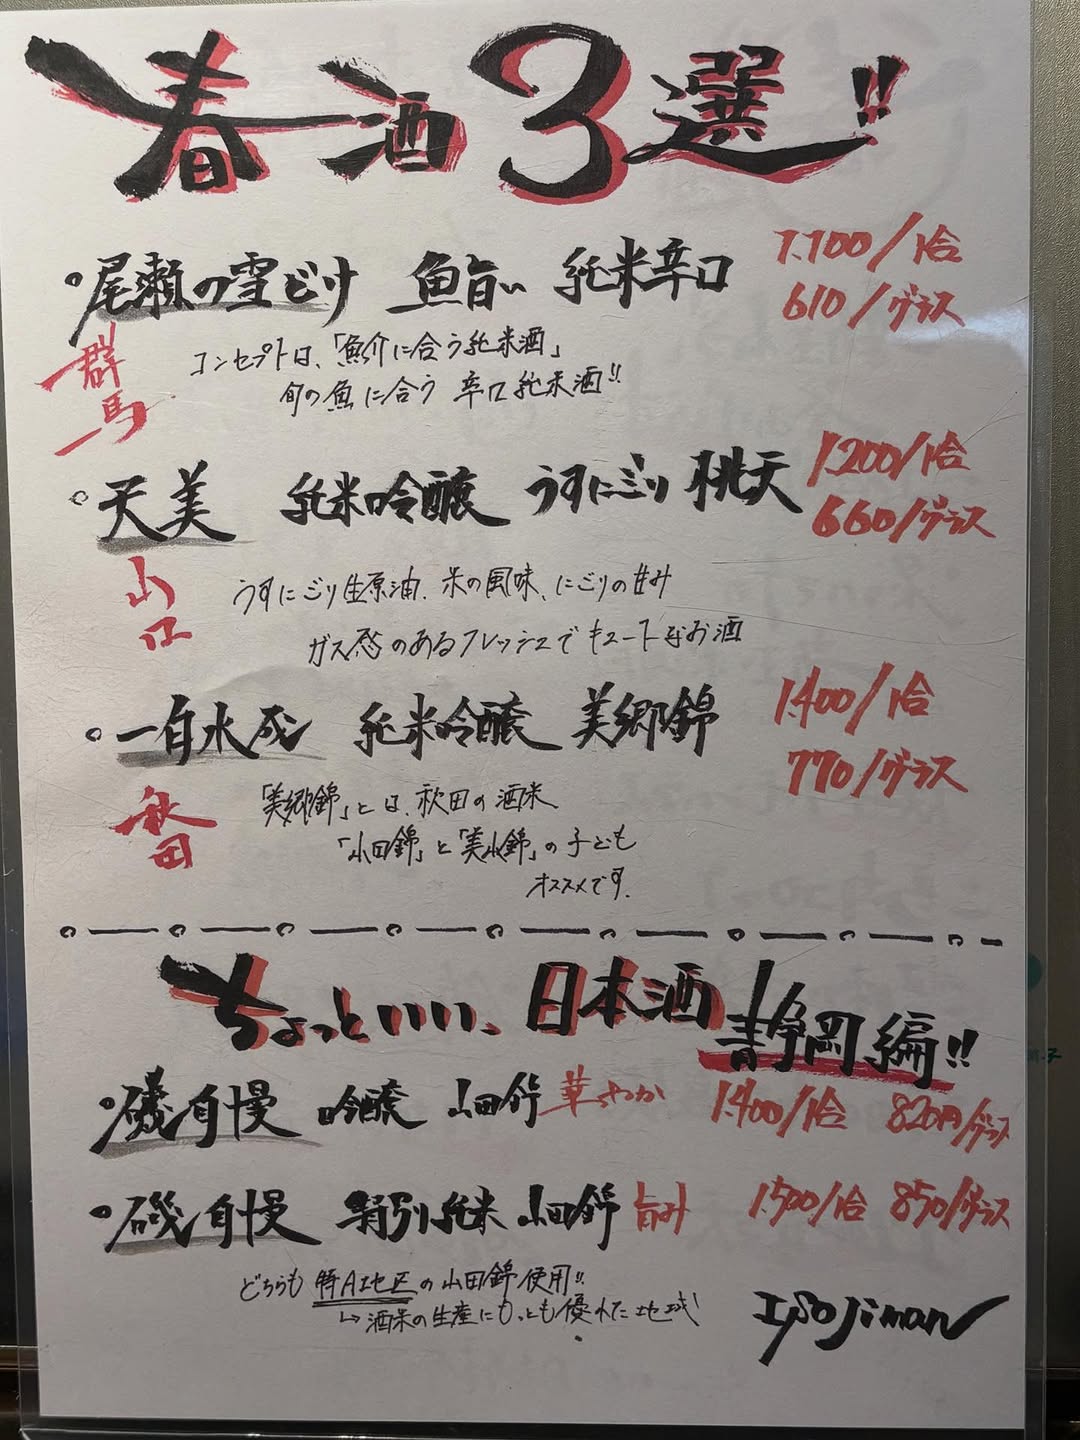 春酒3選!!
尾瀬の雪どけ 魚旨い 純米辛口 1,100/1合
610/グラス
群馬
コンセプトは、「魚介に合う純米酒」
旬の魚に合う 辛口純米酒!!
天美 純米吟醸 うすにごり 桃天 1,200/1合
660/グラス
山口
うすにごり生原酒、米の風味、にごりの甘み
ガス感のあるフレッシュでキュートなお酒
一白水成 純米吟醸 美郷錦 1,400/1合
770/グラス
秋田
「美郷錦」とは、秋田の酒米
「山田錦」と「美山錦」の子ども
オススメです。
ちょっといい、日本酒 静岡編!!
磯自慢 吟醸 山田錦 華やか 1,400/1合 820円/グラス
磯自慢 特別純米 山田錦 旨み 1,500/1合 850/グラス
どちらも 特A地区の山田錦使用!!
↳酒米の生産にもっとも優れた地域!
Isojiman